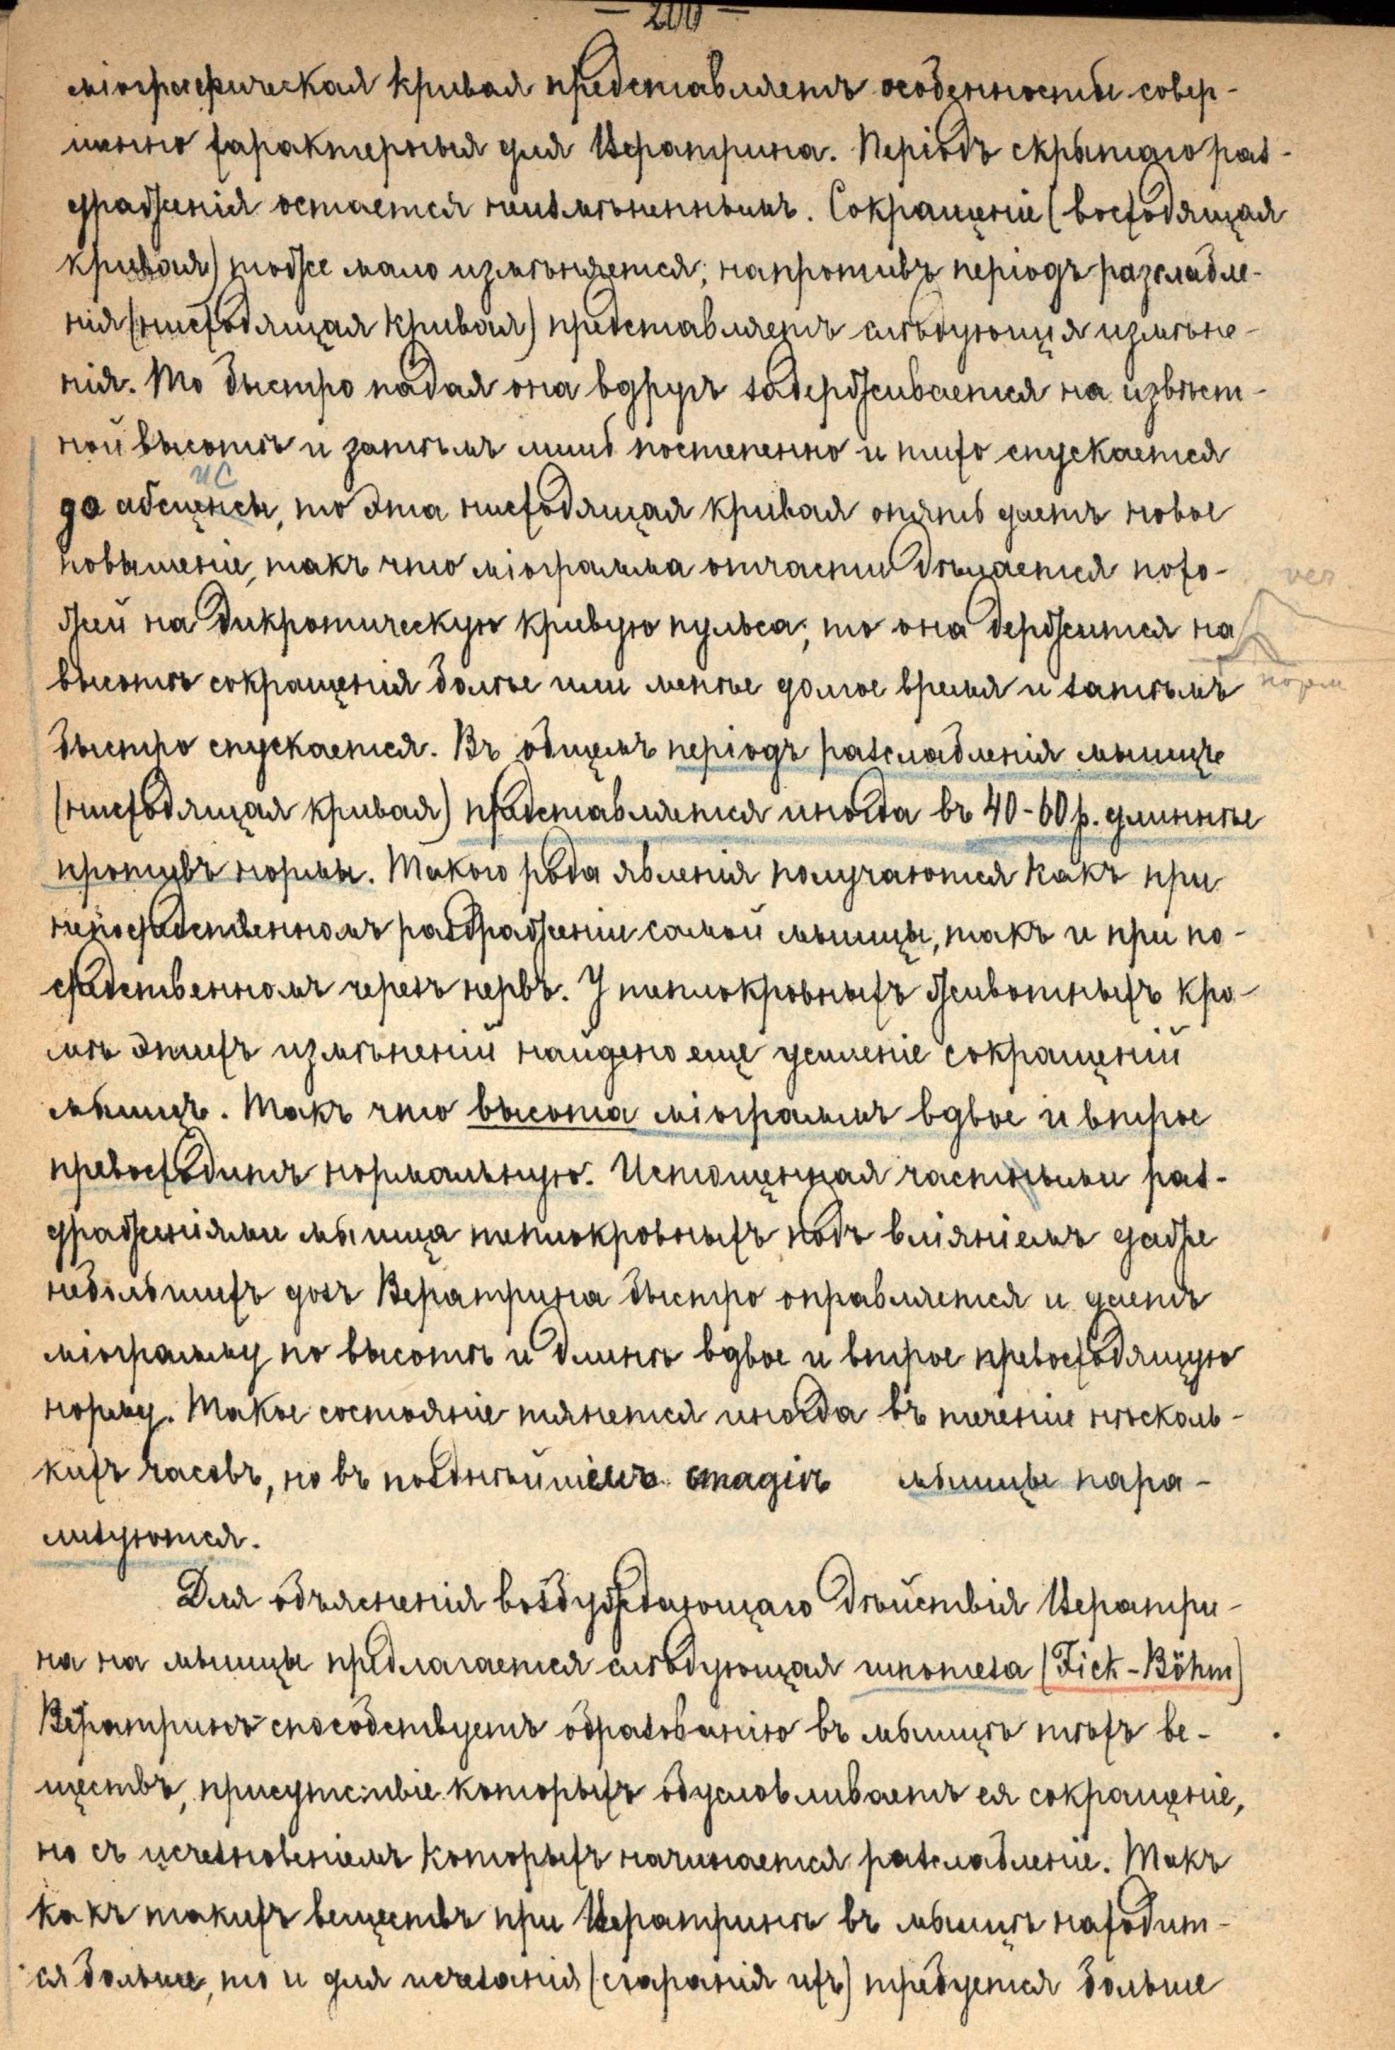 — 200 —
міографическая кривая представляетъ особенности совер-
шенно характерныя для Вератрина. Періодъ скрытаго раз-
драженія остается неизмѣненнымъ. Сокращеніе (восходящая
кривая) тоже мало измѣняется, напротивъ періодъ разслабле-
нія (нисходящая кривая) представляетъ слѣдующія измѣне-
нія. То быстро падая она вдругъ задерживается на извѣст-
ной высотѣ и затѣмъ лишь постепенно и тихо спускается
ис
до абсценсы, то эта нисходящая кривая опять даетъ новое
повышеніе, такъ что міограмма отчасти дѣлается похо-
вер
жей на дикротическую кривую пульса, то она держится на
высотѣ сокращенія болѣе или менѣе долгое время и затѣмъ
норм
быстро спускается. Въ общемъ періодъ разслабленія мышцъ
(нисходящая кривая) представляется иногда въ 40-60 р. длиннѣе
противъ нормы. Такого рода явленія получаются какъ при
непосредственномъ раздраженіи самой мышцы, такъ и при по-
средственномъ черезъ нервъ. У теплокровныхъ животныхъ кро-
мѣ этихъ измѣненій найдено еще усиленіе сокращеній
мышцъ. Такъ что высота міограммъ вдвое и втрое
превосходитъ нормальную. Истощенная частными раз-
драженіями мышца теплокровныхъ подъ вліяніемъ даже
небольшихъ дозъ Вератрина быстро оправляется и даетъ
міограмму по высотѣ и длинѣ вдвое и втрое превосходящую
норму. Такое состояніе тянется иногда въ теченіе нѣсколь-
кихъ часовъ, но въ позднѣйшемъ стадіѣ мышцы пара-
лизуются.
Для объясненія возбуждающаго дѣйствія Вератри-
на на мышцы предлагается слѣдующая гипотеза (Fick-Böhm)
Вератринъ способствуетъ образованію въ мышцѣ тѣхъ ве-
ществъ, присутствіе которыхъ обусловливаетъ ея сокращеніе,
но съ исчезновеніемъ которыхъ начинается разслабленіе. Такъ
какъ такихъ веществъ при Вератринѣ въ мышцѣ находит-
ся больше, то и для исчезанія (сгаранія ихъ) требуется больше